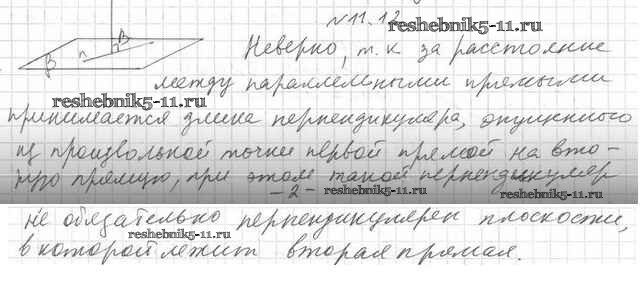 №11.12
reshebnik5-11.ru
Неверно, т.к за расстояние
между параллельными прямыми
reshebnik5-11.ru
принимается длина перпендикуляра, опущенного
из произвольной точки первой прямой на вто-
рую прямую, при этом такой перпендикуляр
-2-
reshebnik5-11.ru
не обязательно перпендикулярен плоскости,
reshebnik5-11.ru
в которой лежит вторая прямая.